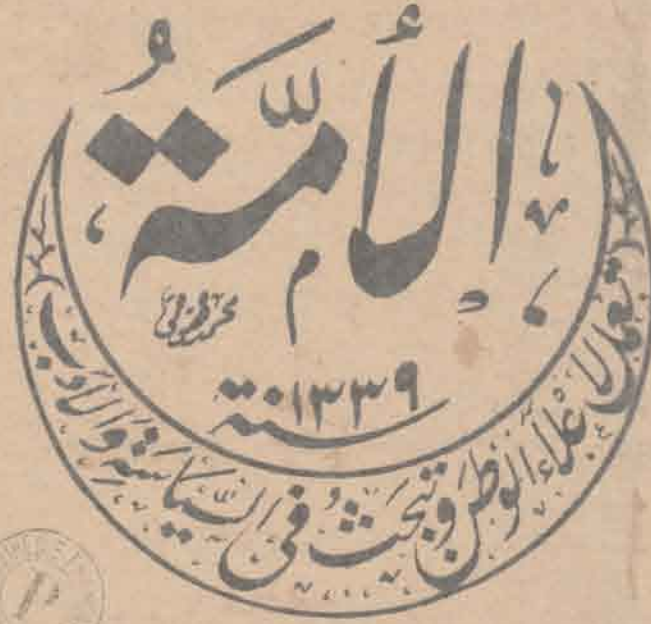 الأُمَّةُ
سنة ١٣٣٩
تعمل لإعلاء الوطن وتبحث في السياسة والأدب